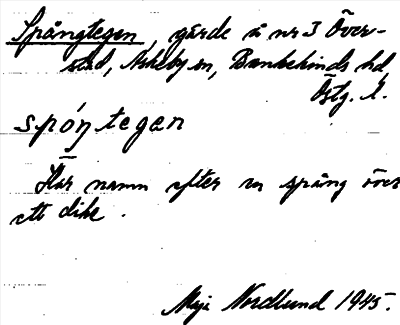 Spångtegen, gärde å nr 3 Över-
stad, Askeby sn, Bankekinds hd,
Östg. l.
spóŋtegen
Har namn efter en spång över
ett dike.
Maja Nordlund 1945.